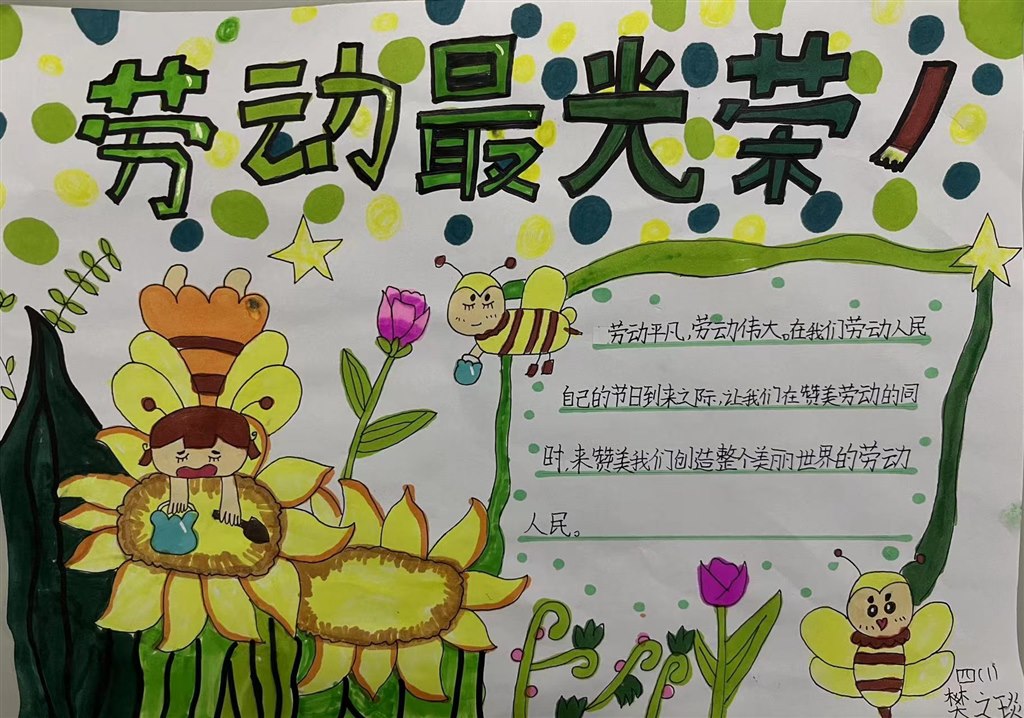 劳动最光荣!
劳动平凡,劳动伟大。在我们劳动人民
自己的节日到来之际,让我们在赞美劳动的同
时,来赞美我们创造整个美丽世界的劳动
人民。
四(1)
樊之琰